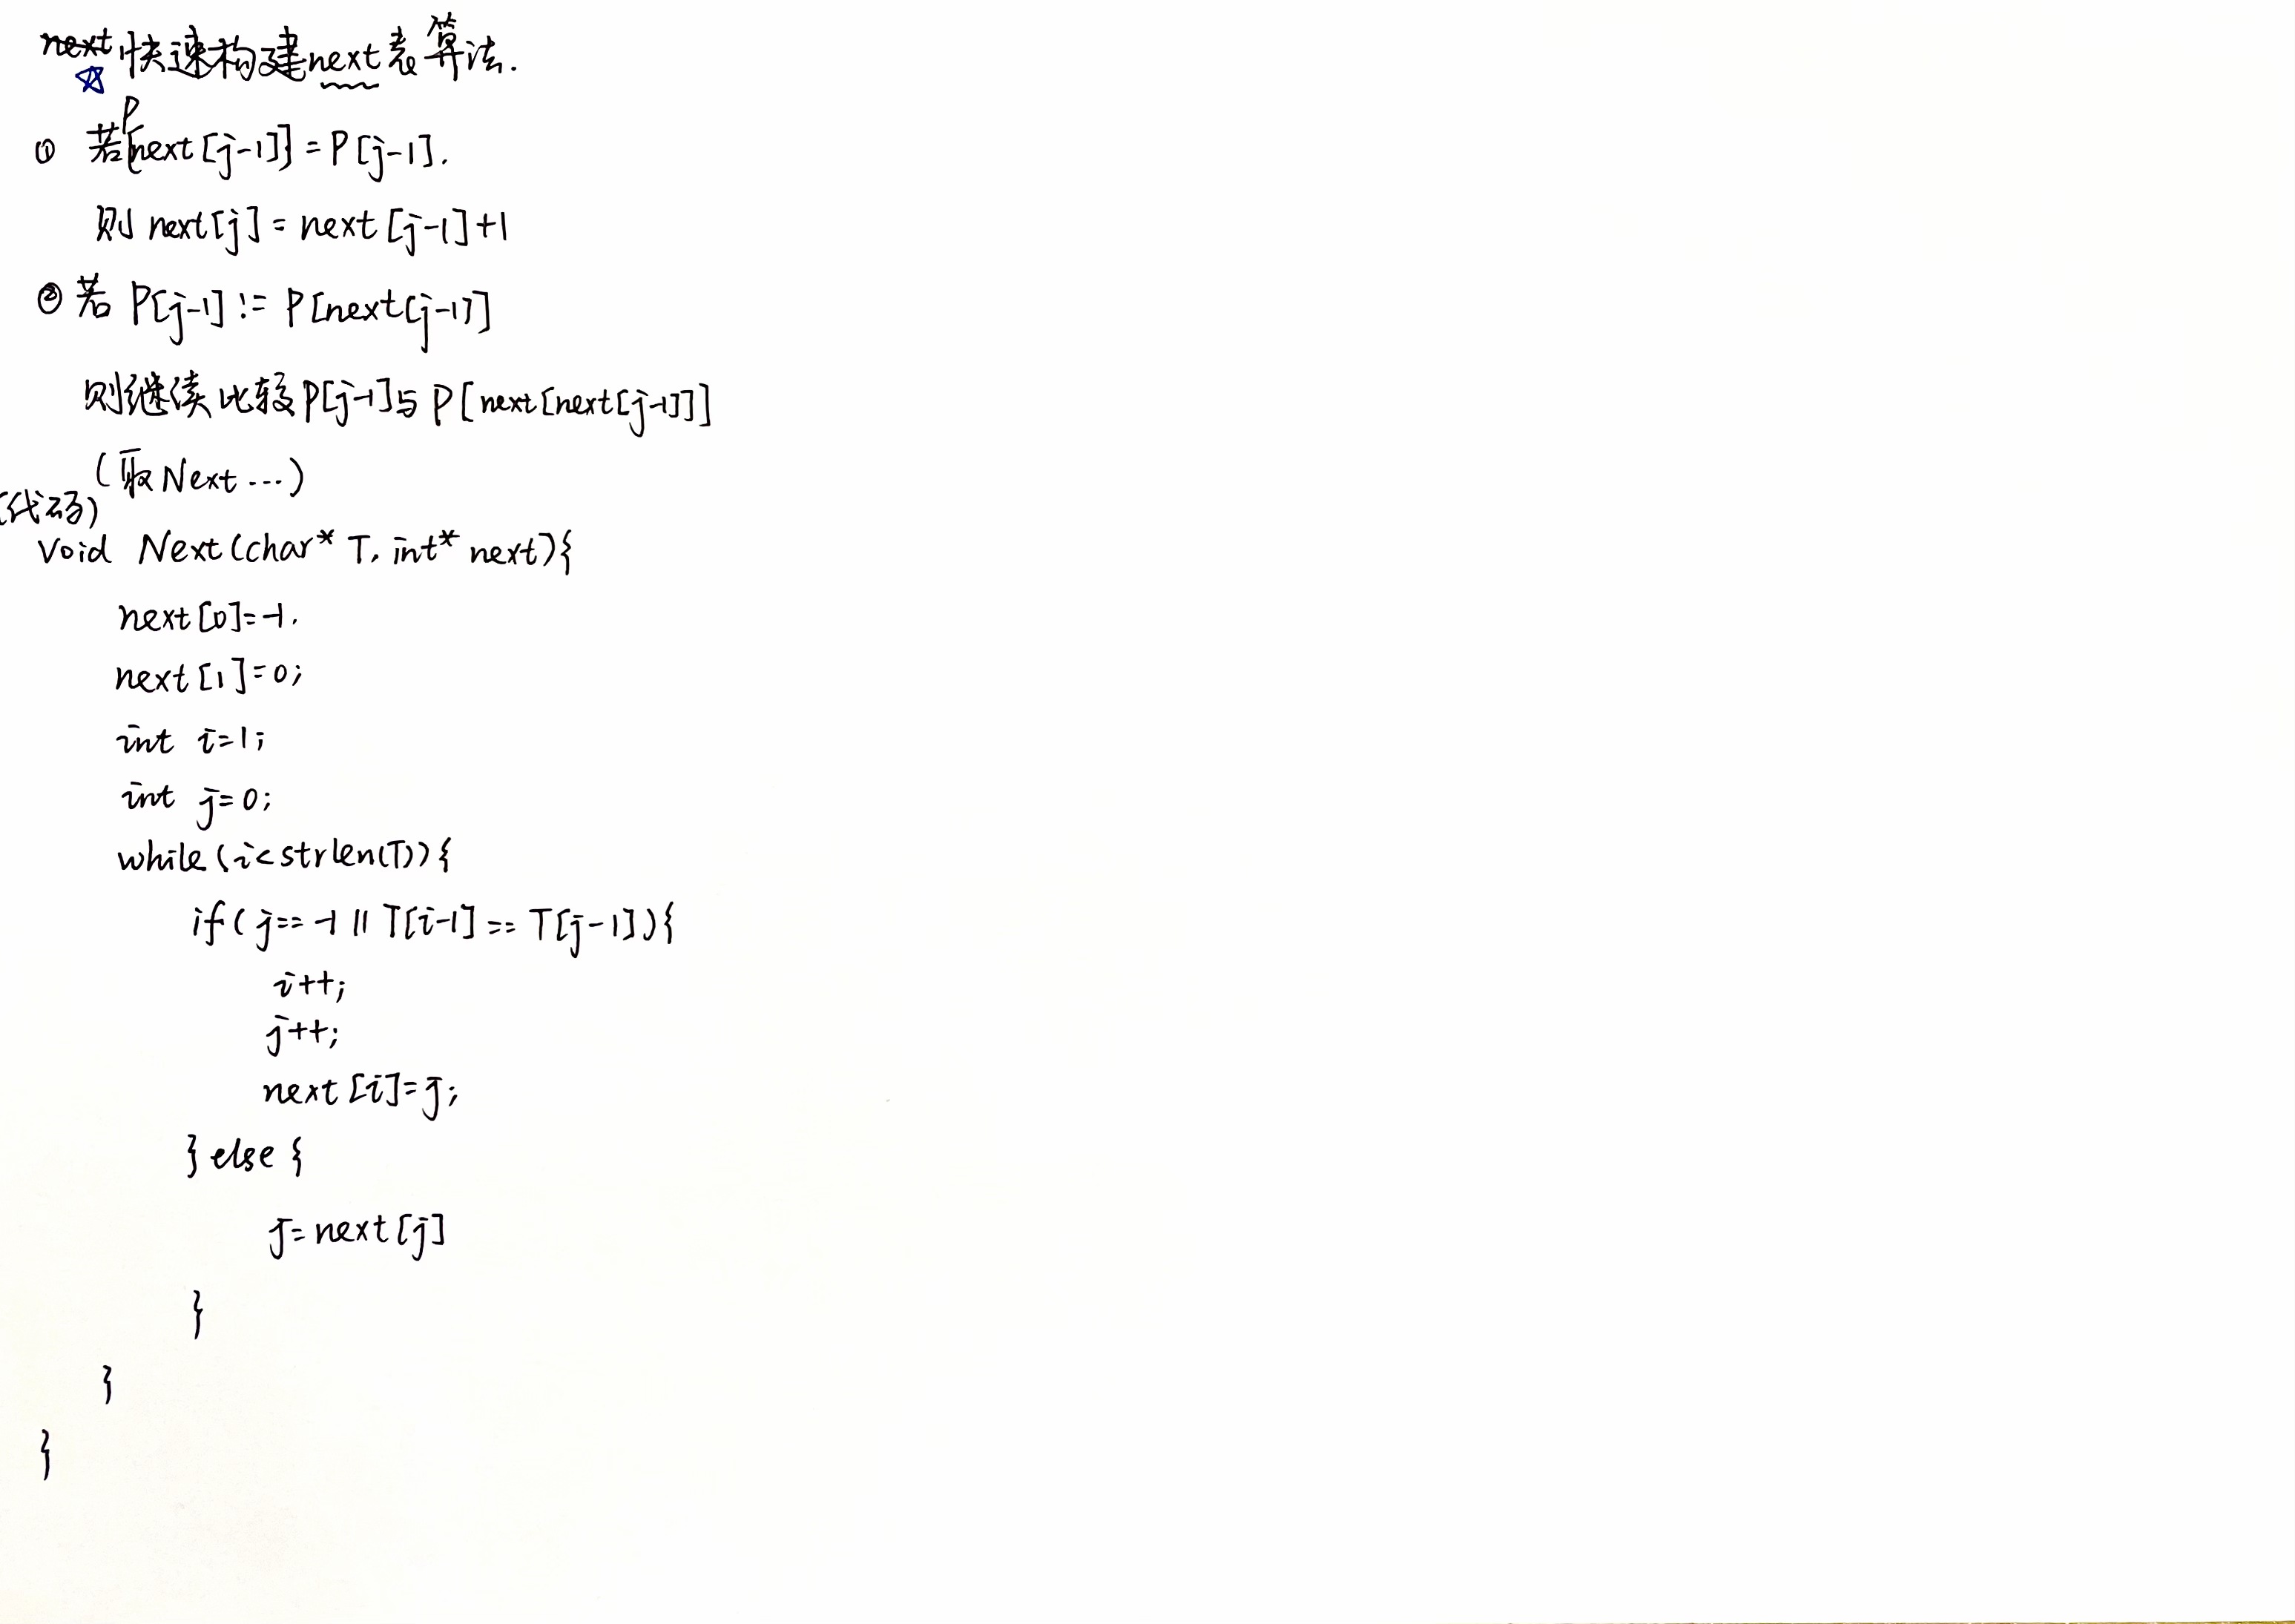 快速构建next表算法.
① 若P[next[j-1]]=P[j-1].
则 next[j]=next[j-1]+1
② 若 P[j-1] != P[next[j-1]]
则继续比较P[j-1]与P[next[next[j-1]]]
(取Next...)
(代码)
Void Next(char* T, int* next){
next[0]=-1.
next[1]=0;
int i=1;
int j=0;
while(i<strlen(T)){
if(j==-1 || T[i-1] == T[j-1]){
i++;
j++;
next[i]=j;
} else {
j=next[j]
}
}
}